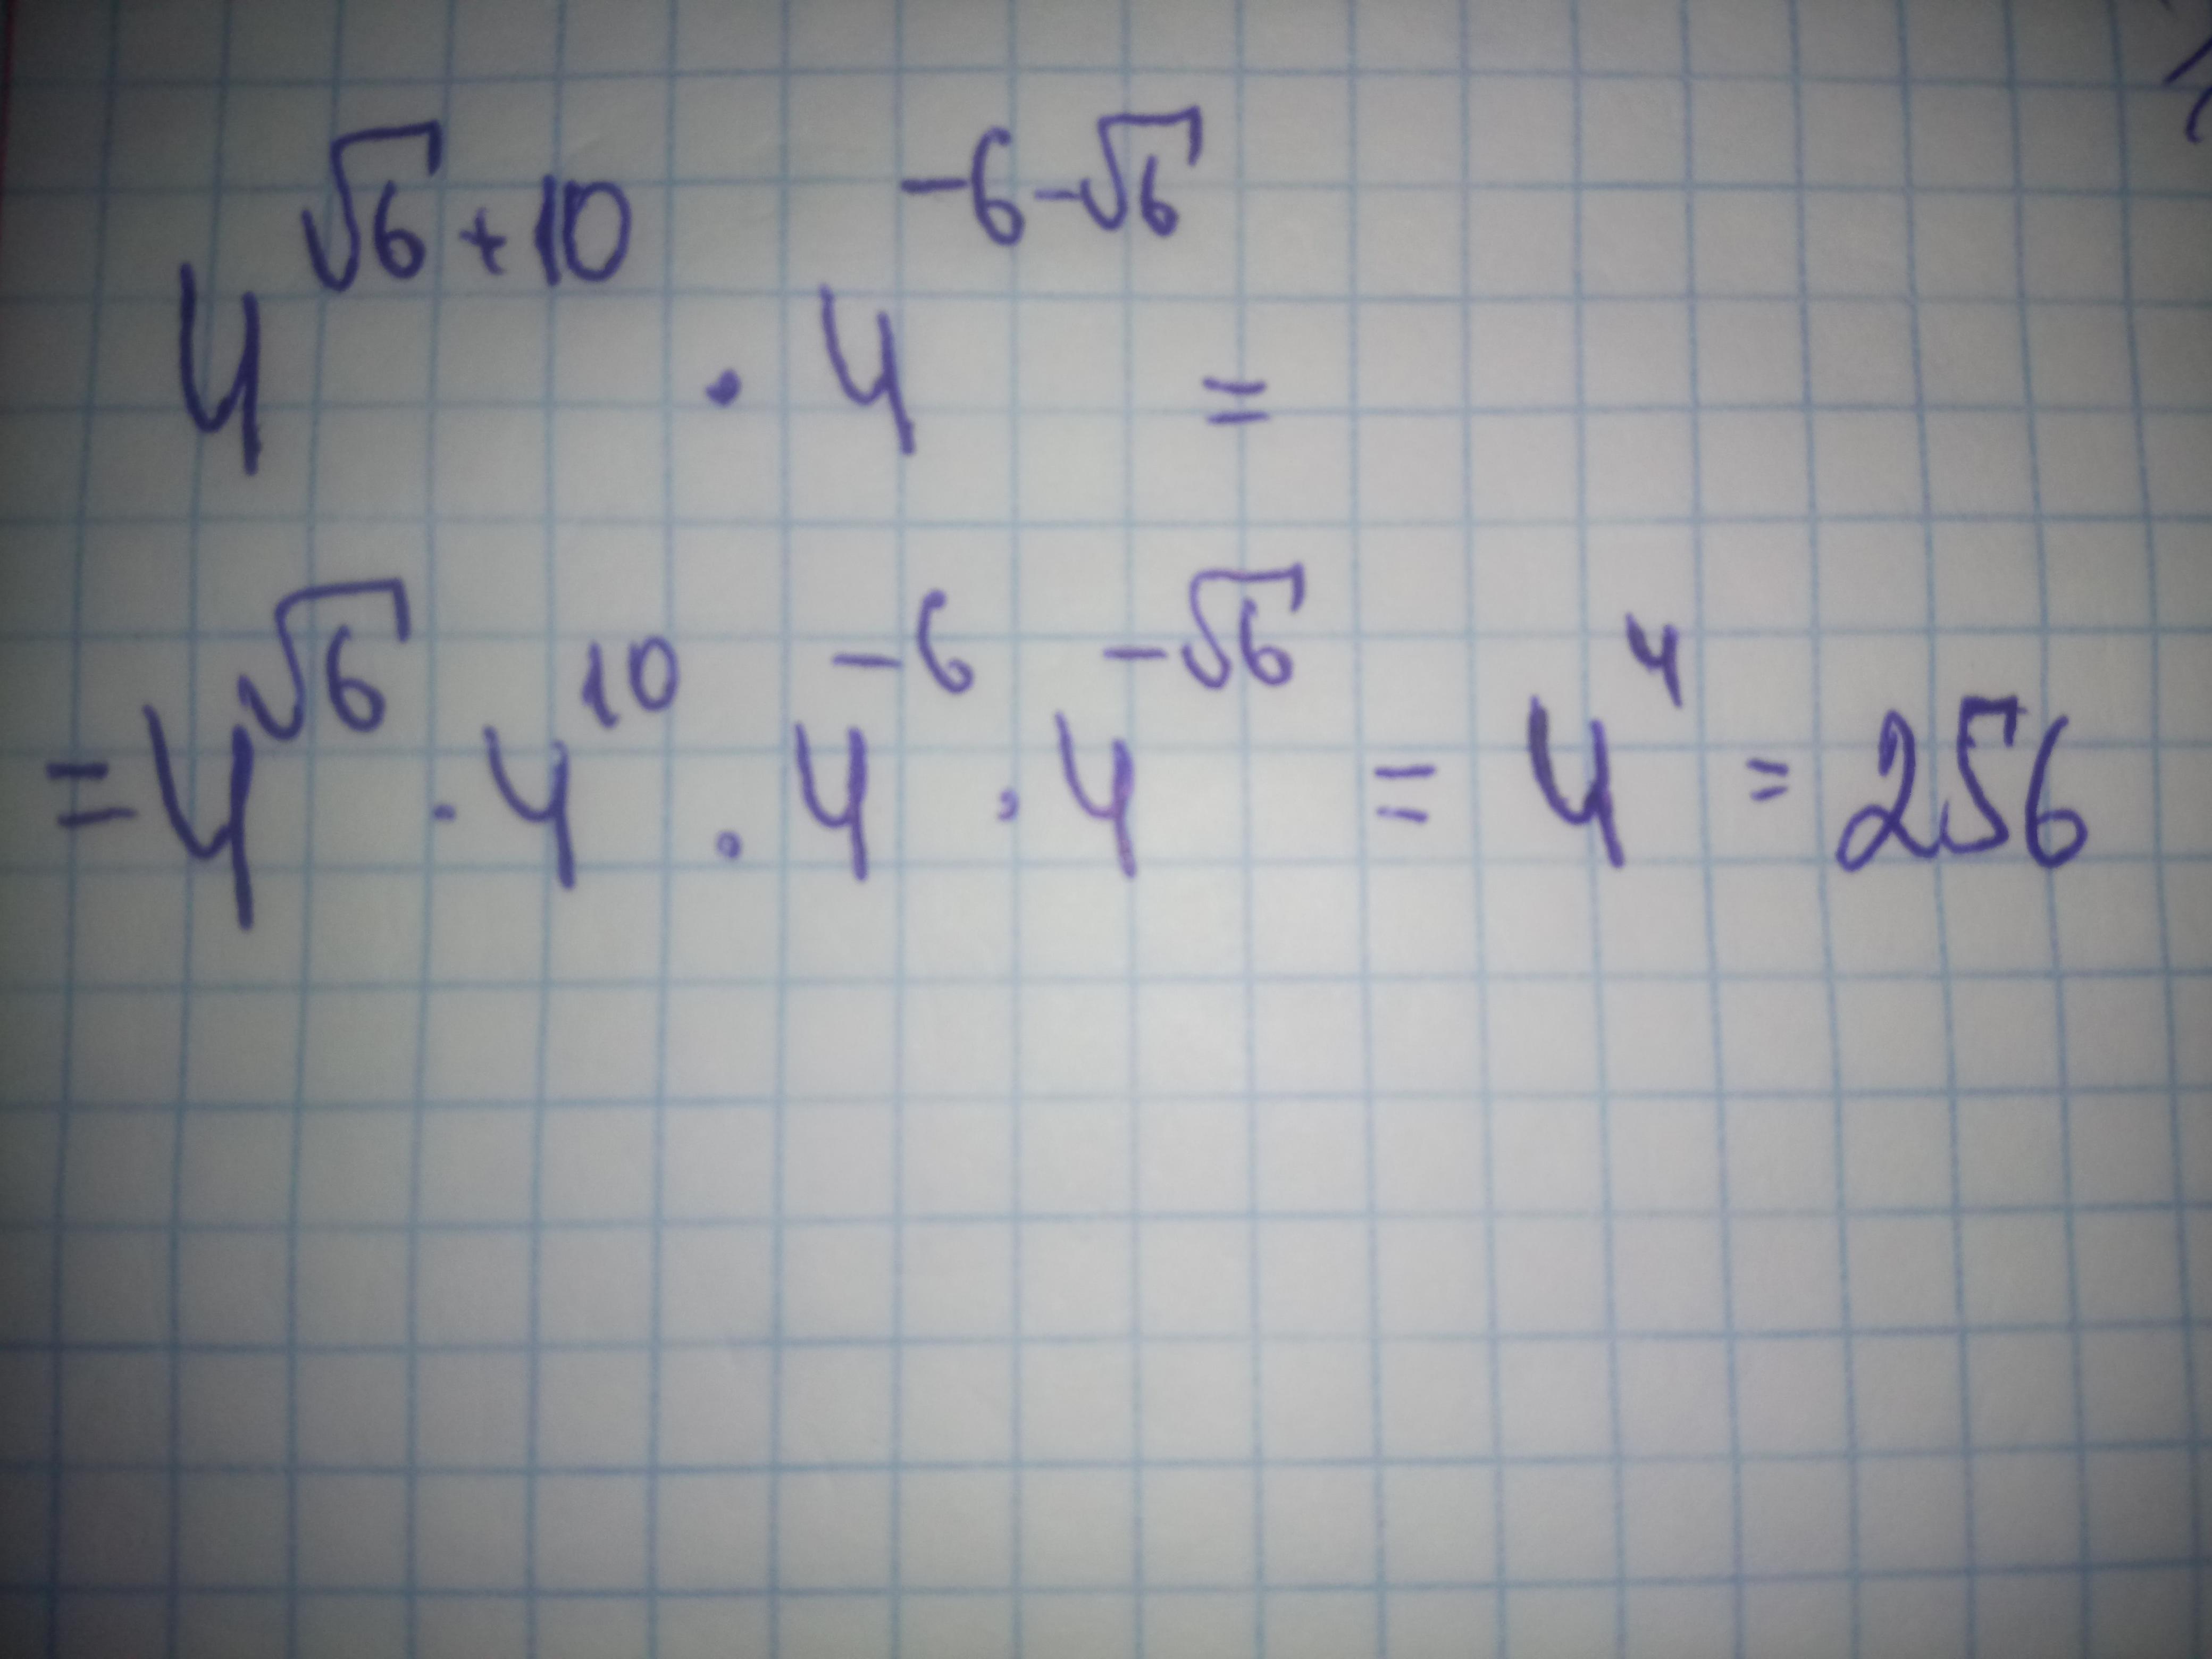 4^{√6+10} · 4^{-6-√6} =
= 4^{√6} · 4^{10} · 4^{-6} · 4^{-√6} = 4^4 = 256